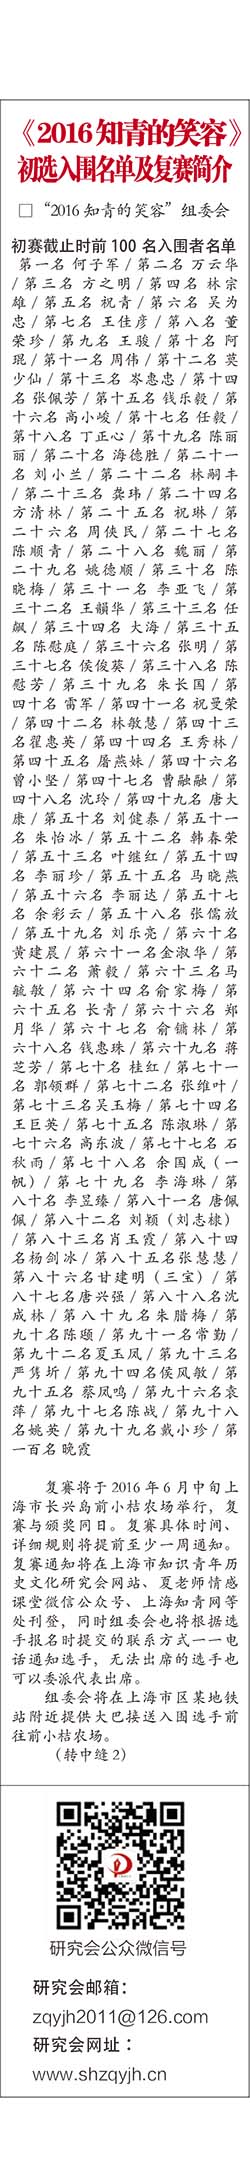 《2016知青的笑容》
初选入围名单及复赛简介
□“2016知青的笑容”组委会
初赛截止时前100名入围者名单
第一名 何子军/第二名 万云华
/第三名 方之明/第四名 林宗
雄/第五名 祝青/第六名 吴为
忠/第七名 王佳彦/第八名 董
荣珍/第九名 王骏/第十名 阿
琨/第十一名 周伟/第十二名 莫
少仙/第十三名 岑惠忠/第十四
名 张佩芳/第十五名 钱乐毅/第
十六名 高小峻/第十七名 任毅/
第十八名 丁正心/第十九名 陈丽
丽/第二十名 海德胜/第二十一
名 刘小兰/第二十二名 林嗣丰
/第二十三名 龚玮/第二十四名
方清林/第二十五名 祝琳/第
二十六名 周侠民/第二十七名
陈顺青/第二十八名 魏丽/第
二十九名 姚德顺/第三十名 陈
晓梅/第三十一名 李亚飞/第
三十二名 王韻华/第三十三名 任
飙/第三十四名 大海/第三十五
名 陈慰庭/第三十六名 张明/第
三十七名 侯俊葵/第三十八名 陈
慰芳/第三十九名 朱长国/第
四十名 雷军/第四十一名 祝曼荣
/第四十二名 林敏慧/第四十三
名翟惠英/第四十四名 王秀林/
第四十五名 屠燕妹/第四十六名
曾小坚/第四十七名 曹融融/第
四十八名 沈玲/第四十九名 唐大
康/第五十名 刘健泰/第五十一
名 朱怡冰/第五十二名 韩春荣
/第五十三名 叶继红/第五十四
名 李丽珍/第五十五名 马晓燕
/第五十六名 李丽达/第五十七
名 余彩云/第五十八名 张儒放
/第五十九名 刘乐亮/第六十名
黄建晨/第六十一名金淑华/第
六十二名 萧毅/第六十三名马
毓敏/第六十四名俞家梅/第
六十五名 长青/第六十六名 郑
月华/第六十七名 俞镛林/第
六十八名 钱惠珠/第六十九名 蒋
芝芳/第七十名 桂红/第七十一
名 郭领群/第七十二名 张维叶/
第七十三名吴玉梅/第七十四名
王巨英/第七十五名 陈淑琳/第
七十六名 高东波/第七十七名 石
秋雨/第七十八名 余国成（一
帆）/第七十九名 李海琳/第
八十名 李昱臻/第八十一名 唐佩
佩/第八十二名 刘颖（刘志棣）
/第八十三名肖玉霞/第八十四
名杨剑冰/第八十五名张慧慧/
第八十六名甘建明（三宝）/第
八十七名唐兴强/第八十八名沈
成林/第八十九名朱腊梅/第
九十名陈颋/第九十一名常勤/
第九十二名夏玉凤/第九十三名
严隽圻/第九十四名侯风敏/第
九十五名 蔡凤鸣/第九十六名袁
萍/第九十七名陈战/第九十八
名姚英/第九十九名戴小珍/第
一百名 晚霞
复赛将于2016年6月中旬上
海市长兴岛前小桔农场举行，复
赛与颁奖同日。复赛具体时间、
详细规则将提前至少一周通知。
复赛通知将在上海市知识青年历
史文化研究会网站、夏老师情感
课堂微信公众号、上海知青网等
处刊登，同时组委会也将根据选
手报名时提交的联系方式一一电
话通知选手，无法出席的选手也
可以委派代表出席。
组委会将在上海市区某地铁
站附近提供大巴接送入围选手前
往前小桔农场。
（转中缝2）
研究会公众微信号
研究会邮箱：
zqyjh2011@126.com
研究会网址：
www.shzqyjh.cn